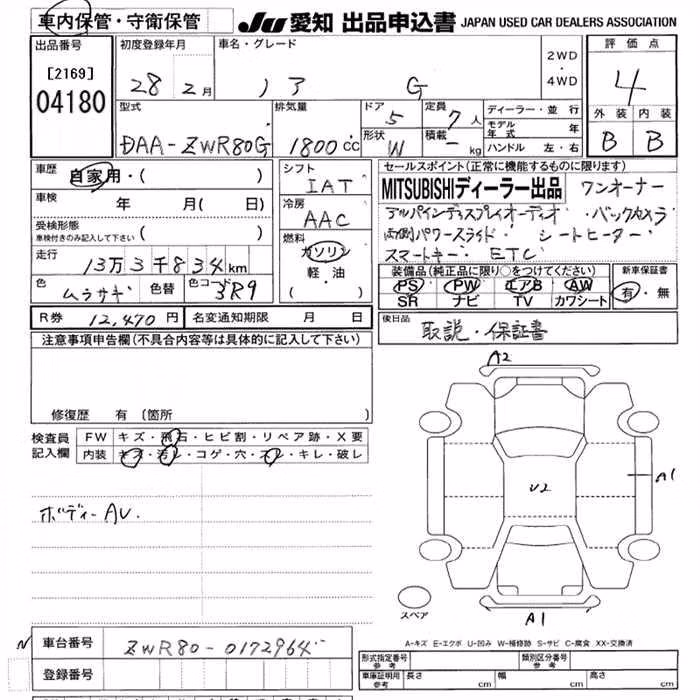 車内保管・守衛保管 JU 愛知 出品申込書 JAPAN USED CAR DEALERS ASSOCIATION
出品番号 初度登録年月 車名・グレード 2WD・4WD 評価点
[2169] 28 2月 ノア G 4
04180 型式 排気量 ドア 5 定員 7人 ディーラー・並行 外装 内装
DAA-ZWR80G 1800cc 形状 W 積載 - kg モデル年式 年 B B
ハンドル 左・右
車歴 自家用・( ) シフト セールスポイント(正常に機能するものに限ります)
IAT MITSUBISHIディーラー出品 ワンオーナー
車検 年 月( 日) 冷房 アルパインディスプレイオーディオ バックカメラ
受検形態 車検付きのみ記入して下さい ( ) AAC 両側パワースライド シートヒーター
走行 13万3千834km 燃料 ガソリン スマートキー ETC
軽・油 装備品(純正品に限り○をつけてください) 新車保証書
色 ムラサキ 色替 色コード 3R9 ( ) PS PW エアB AW 有・無
SR ナビ TV カワシート
R券 12,470円 名変通知期限 月 日 後日品 取説・保証書
注意事項申告欄(不具合内容等は具体的に記入して下さい)
A2
修復歴 有(箇所 )
検査員 FW キズ・飛石・ヒビ割・リペア跡・X要
記入欄 内装 キズ・汚レ・コゲ・穴・スレ・キレ・破レ
A1
U2
ボディーAU.
スペア
A1
N 車台番号 ZWR80-0172964
A-キズ E-エクボ U-凹み W-補修跡 S-サビ C-腐食 XX-交換済
登録番号 形式指定番号 参考 類別区分番号 参考
車庫証明用 参考 長さ cm 幅 cm 高さ cm